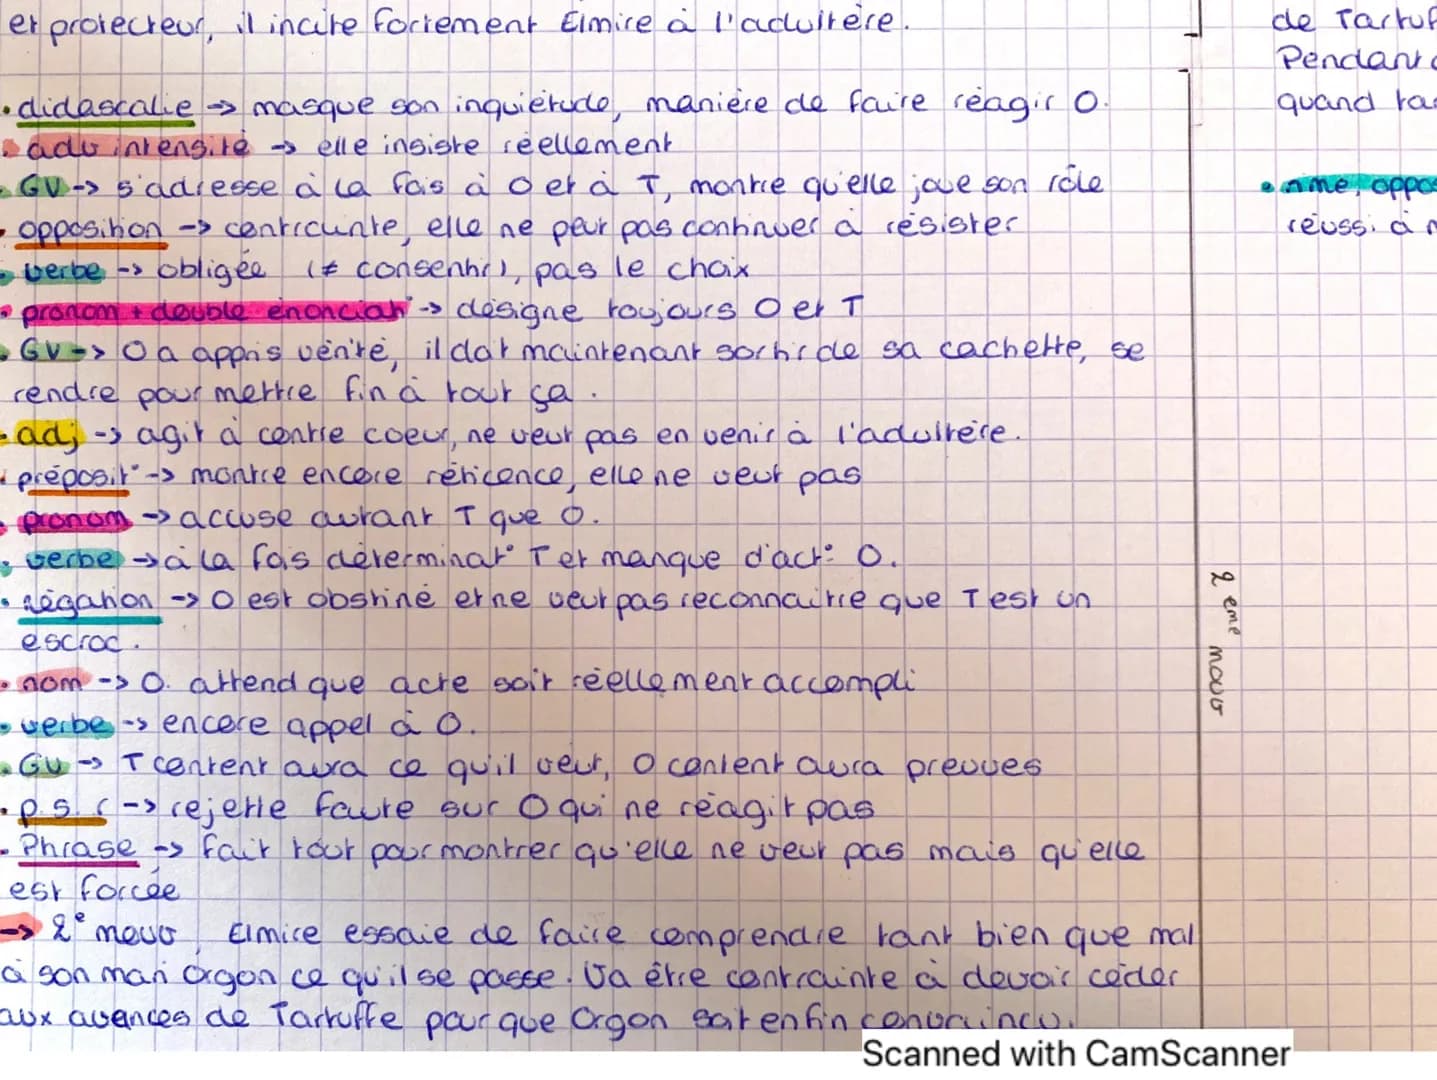 et protecteur, il incite fortement Elmire à l'adultère.
• didascalie → masque son inquiétude, manière de faire réagir O.
• adv intensité → elle insiste réellement
• GV → s'adresse à la fois à O et à T, montre qu'elle joue son rôle
• opposition → contrainte, elle ne peut pas continuer à résister
• verbe → obligée (≠ consentir), pas le choix
• pronom + double énonciat° → désigne toujours O et T
• GV → O a appris vérité, il doit maintenant sortir de sa cachette, se
rendre pour mettre fin à tout ça.
• adj → agit à contre coeur, ne veut pas en venir à l'adultère.
• préposit° → montre encore réticence, elle ne veut pas
• pronom → accuse autant T que O.
• verbe → à la fois déterminat° T et manque d'act° O.
• négation → O est obstiné et ne veut pas reconnaitre que T est un
escroc.
• nom → O. attend que acte soit réellement accompli
• verbe → encore appel à O.
• GV → T content aura ce qu'il veut, O content aura preuves
• p.s. → rejette faute sur O qui ne réagit pas
• Phrase → fait tout pour montrer qu'elle ne veut pas mais qu'elle
est forcée
→ 2e mouv, Elmire essaie de faire comprendre tant bien que mal
à son mari Orgon ce qu'il se passe. Va être contrainte à devoir céder
aux avances de Tartuffe pour que Orgon soit enfin convaincu.
2 eme mouv
de Tartuf
Pendant
quand ta
• nme, oppos
réussi à
Scanned with CamScanner